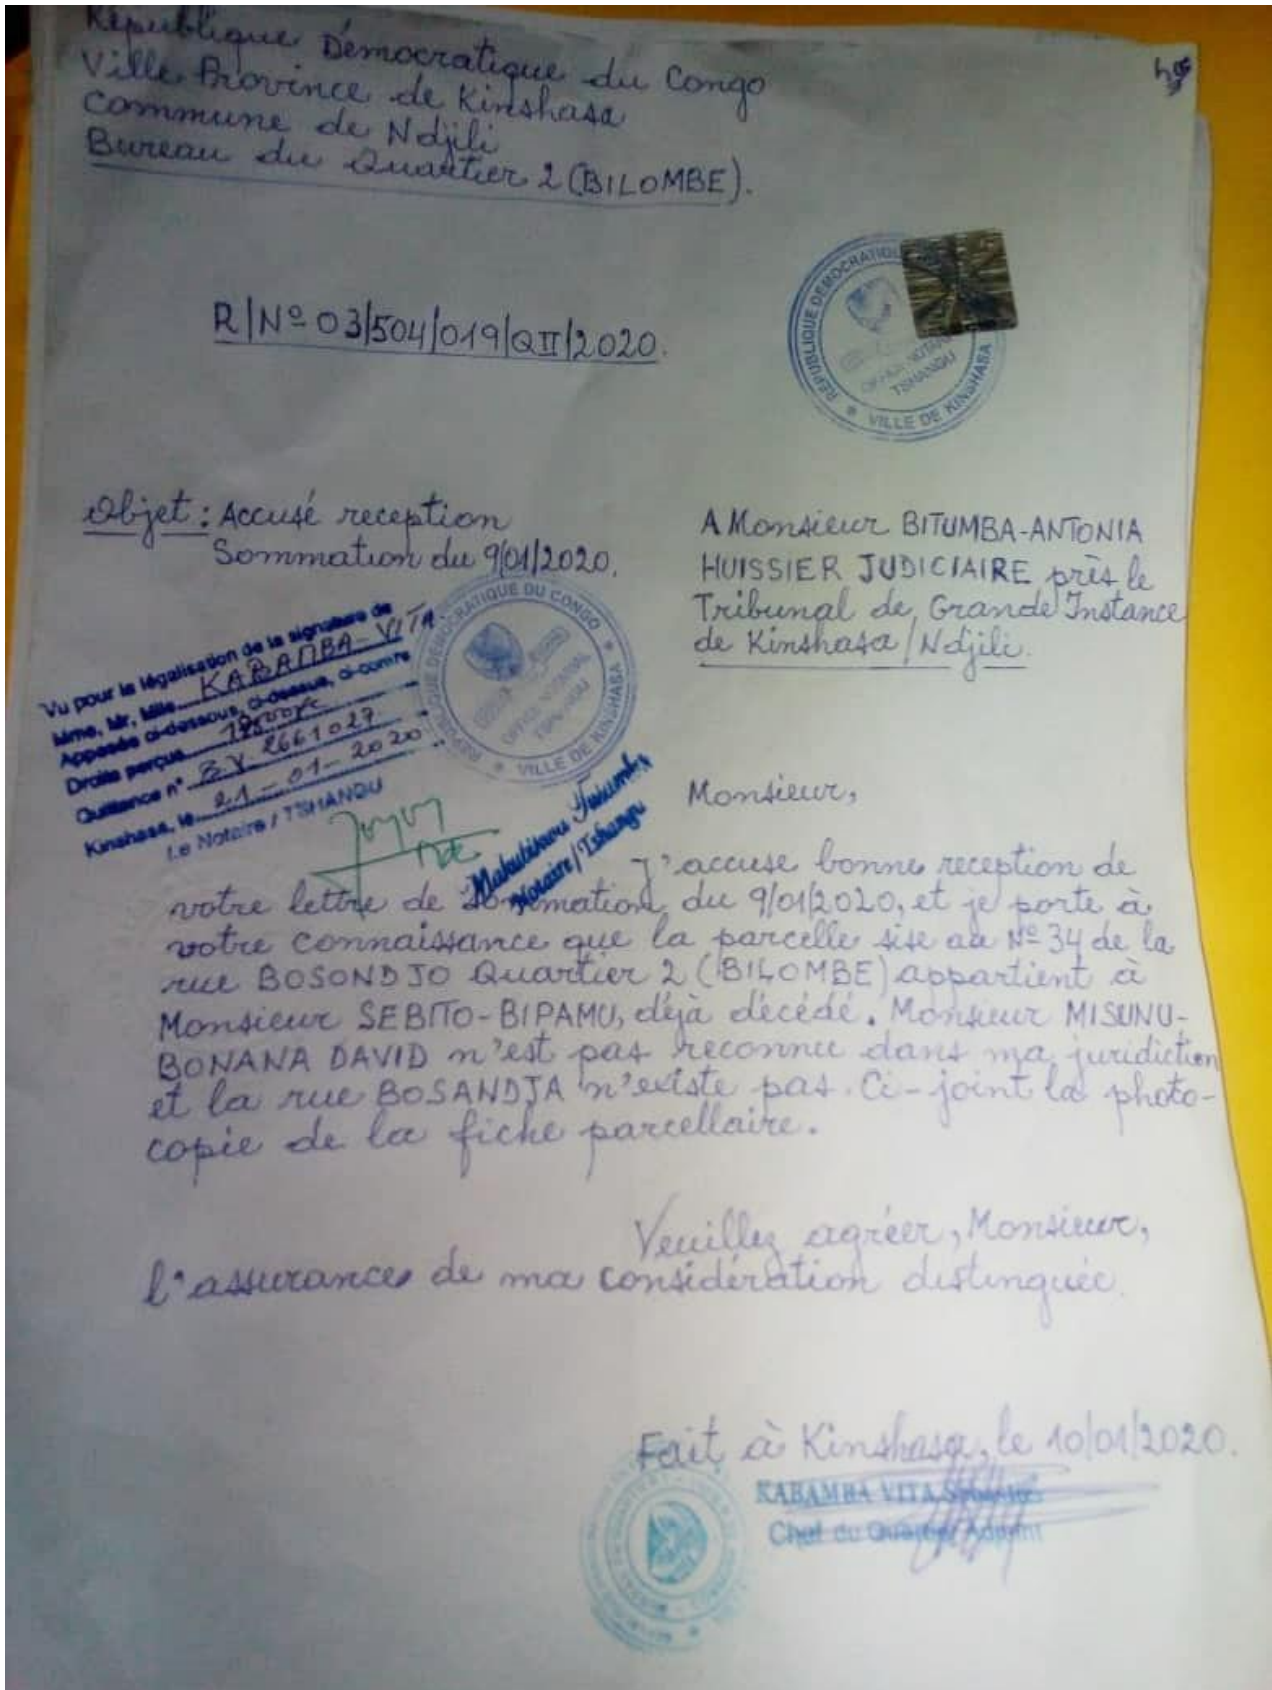 République Démocratique du Congo
Ville Province de Kinshasa
Commune de Ndjili
Bureau du Quartier 2 (BILOMBE).
R/Nº 03/504/019/QII/2020.
RÉPUBLIQUE DÉMOCRATIQUE
OFFICE NOTARIAL
TSHANGU
VILLE DE KINSHASA
Objet : Accusé reception
Sommation du 9/01/2020.
A Monsieur BITUMBA-ANTONIA
HUISSIER JUDICIAIRE près le
Tribunal de Grande Instance
de Kinshasa/Ndjili.
RÉPUBLIQUE DÉMOCRATIQUE DU CONGO
OFFICE NOTARIAL
TSHANGU
VILLE DE KINSHASA
Vu pour la légalisation de la signature de
Mme, Mr, Mlle KABAMBA-VITA
Apposée ci-dessous, ci-dessus, ci-contre
Droits perçus
Quittance n° BV 2661027
Kinshasa, le 21-01-2020
Le Notaire / TSHANGU
Notaire/Tshangu
Monsieur,
J'accuse bonne reception de
votre lettre de Sommation du 9/01/2020, et je porte à
votre connaissance que la parcelle sise au Nº 34 de la
rue BOSONDJO Quartier 2 (BILOMBE) appartient à
Monsieur SEBITO-BIPAMU, déjà décédé. Monsieur MISUNU-
BONANA DAVID n'est pas reconnu dans ma juridiction
et la rue BOSANDJA n'existe pas. Ci-joint la photo-
copie de la fiche parcellaire.
Veuillez agréer, Monsieur,
l'assurances de ma considération distinguée.
Fait à Kinshasa, le 10/01/2020.
KABAMBA VITA
Chef du Quartier Adjoint